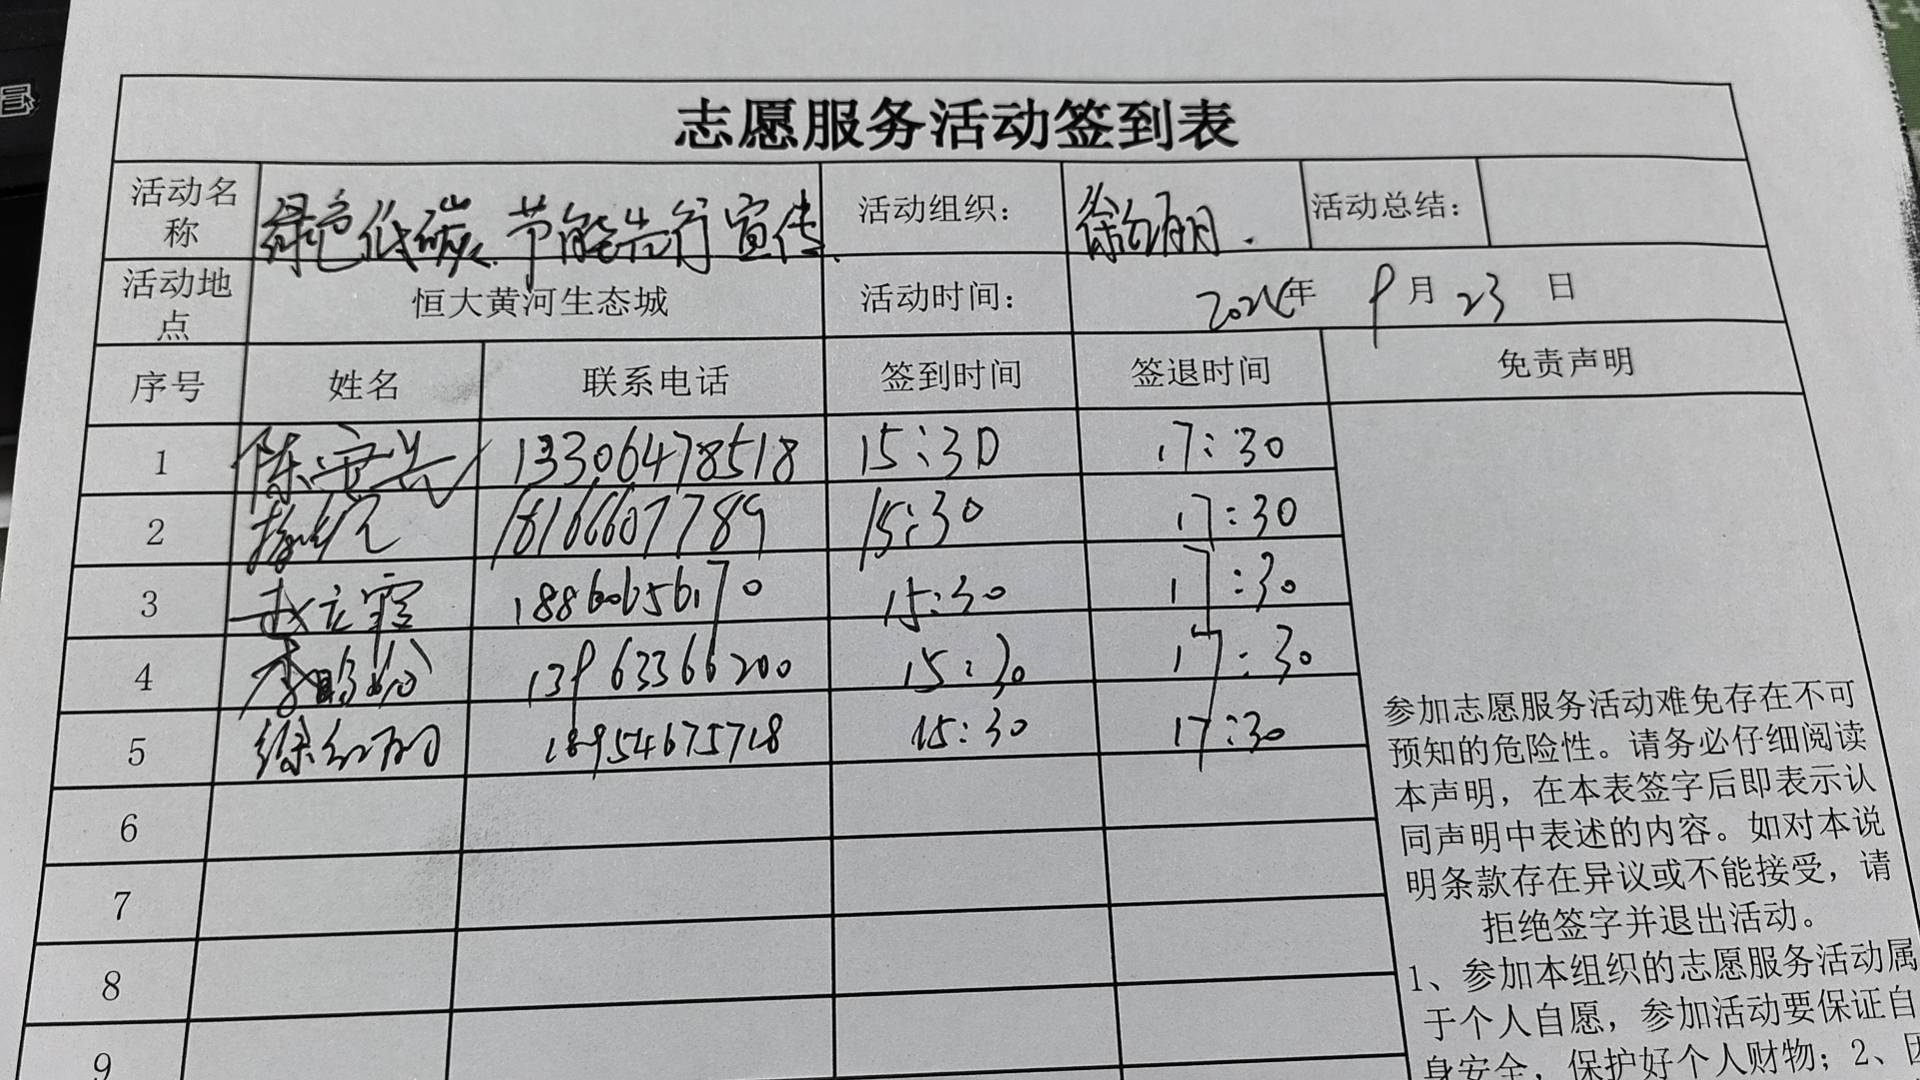 志愿服务活动签到表
活动名称 绿色低碳、节能先行宣传 活动组织： 徐红丽. 活动总结：
活动地点 恒大黄河生态城 活动时间： 年 9月 23 日
序号 姓名 联系电话 签到时间 签退时间 免责声明
1 陈安兴 13306478518 15:30 17:30
2 18166607789 15:30 17:30
3 赵立霞 18860656170 15:30 17:30
4 李 13963366200 15:30 17:30
5 徐红丽 18954675718 15:30 17:30
6
7
8
9
参加志愿服务活动难免存在不可
预知的危险性。请务必仔细阅读
本声明，在本表签字后即表示认
同声明中表述的内容。如对本说
明条款存在异议或不能接受，请
拒绝签字并退出活动。
1、参加本组织的志愿服务活动属
于个人自愿，参加活动要保证自
身安全，保护好个人财物；2、因